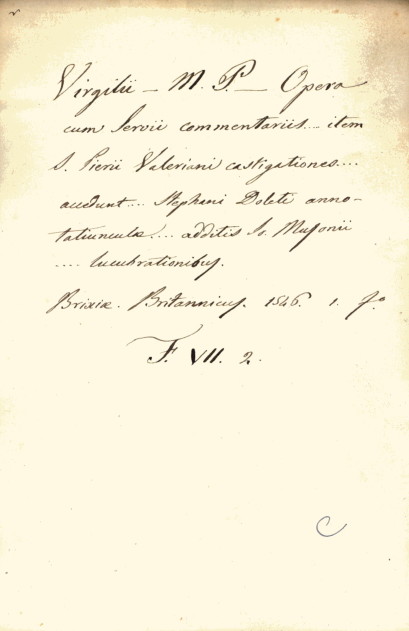 Virgilii – M. P. – Opera
cum Servii commentariis.... item
S. Pierii Valeriani castigationes....
accedunt.... Stephani Doleti anno-
tatiunculæ.... additis Io. Musonii
.... lucubrationibus.
Brixiæ. Britannicus. 1546. 1. fº
F. VII. 2.
C